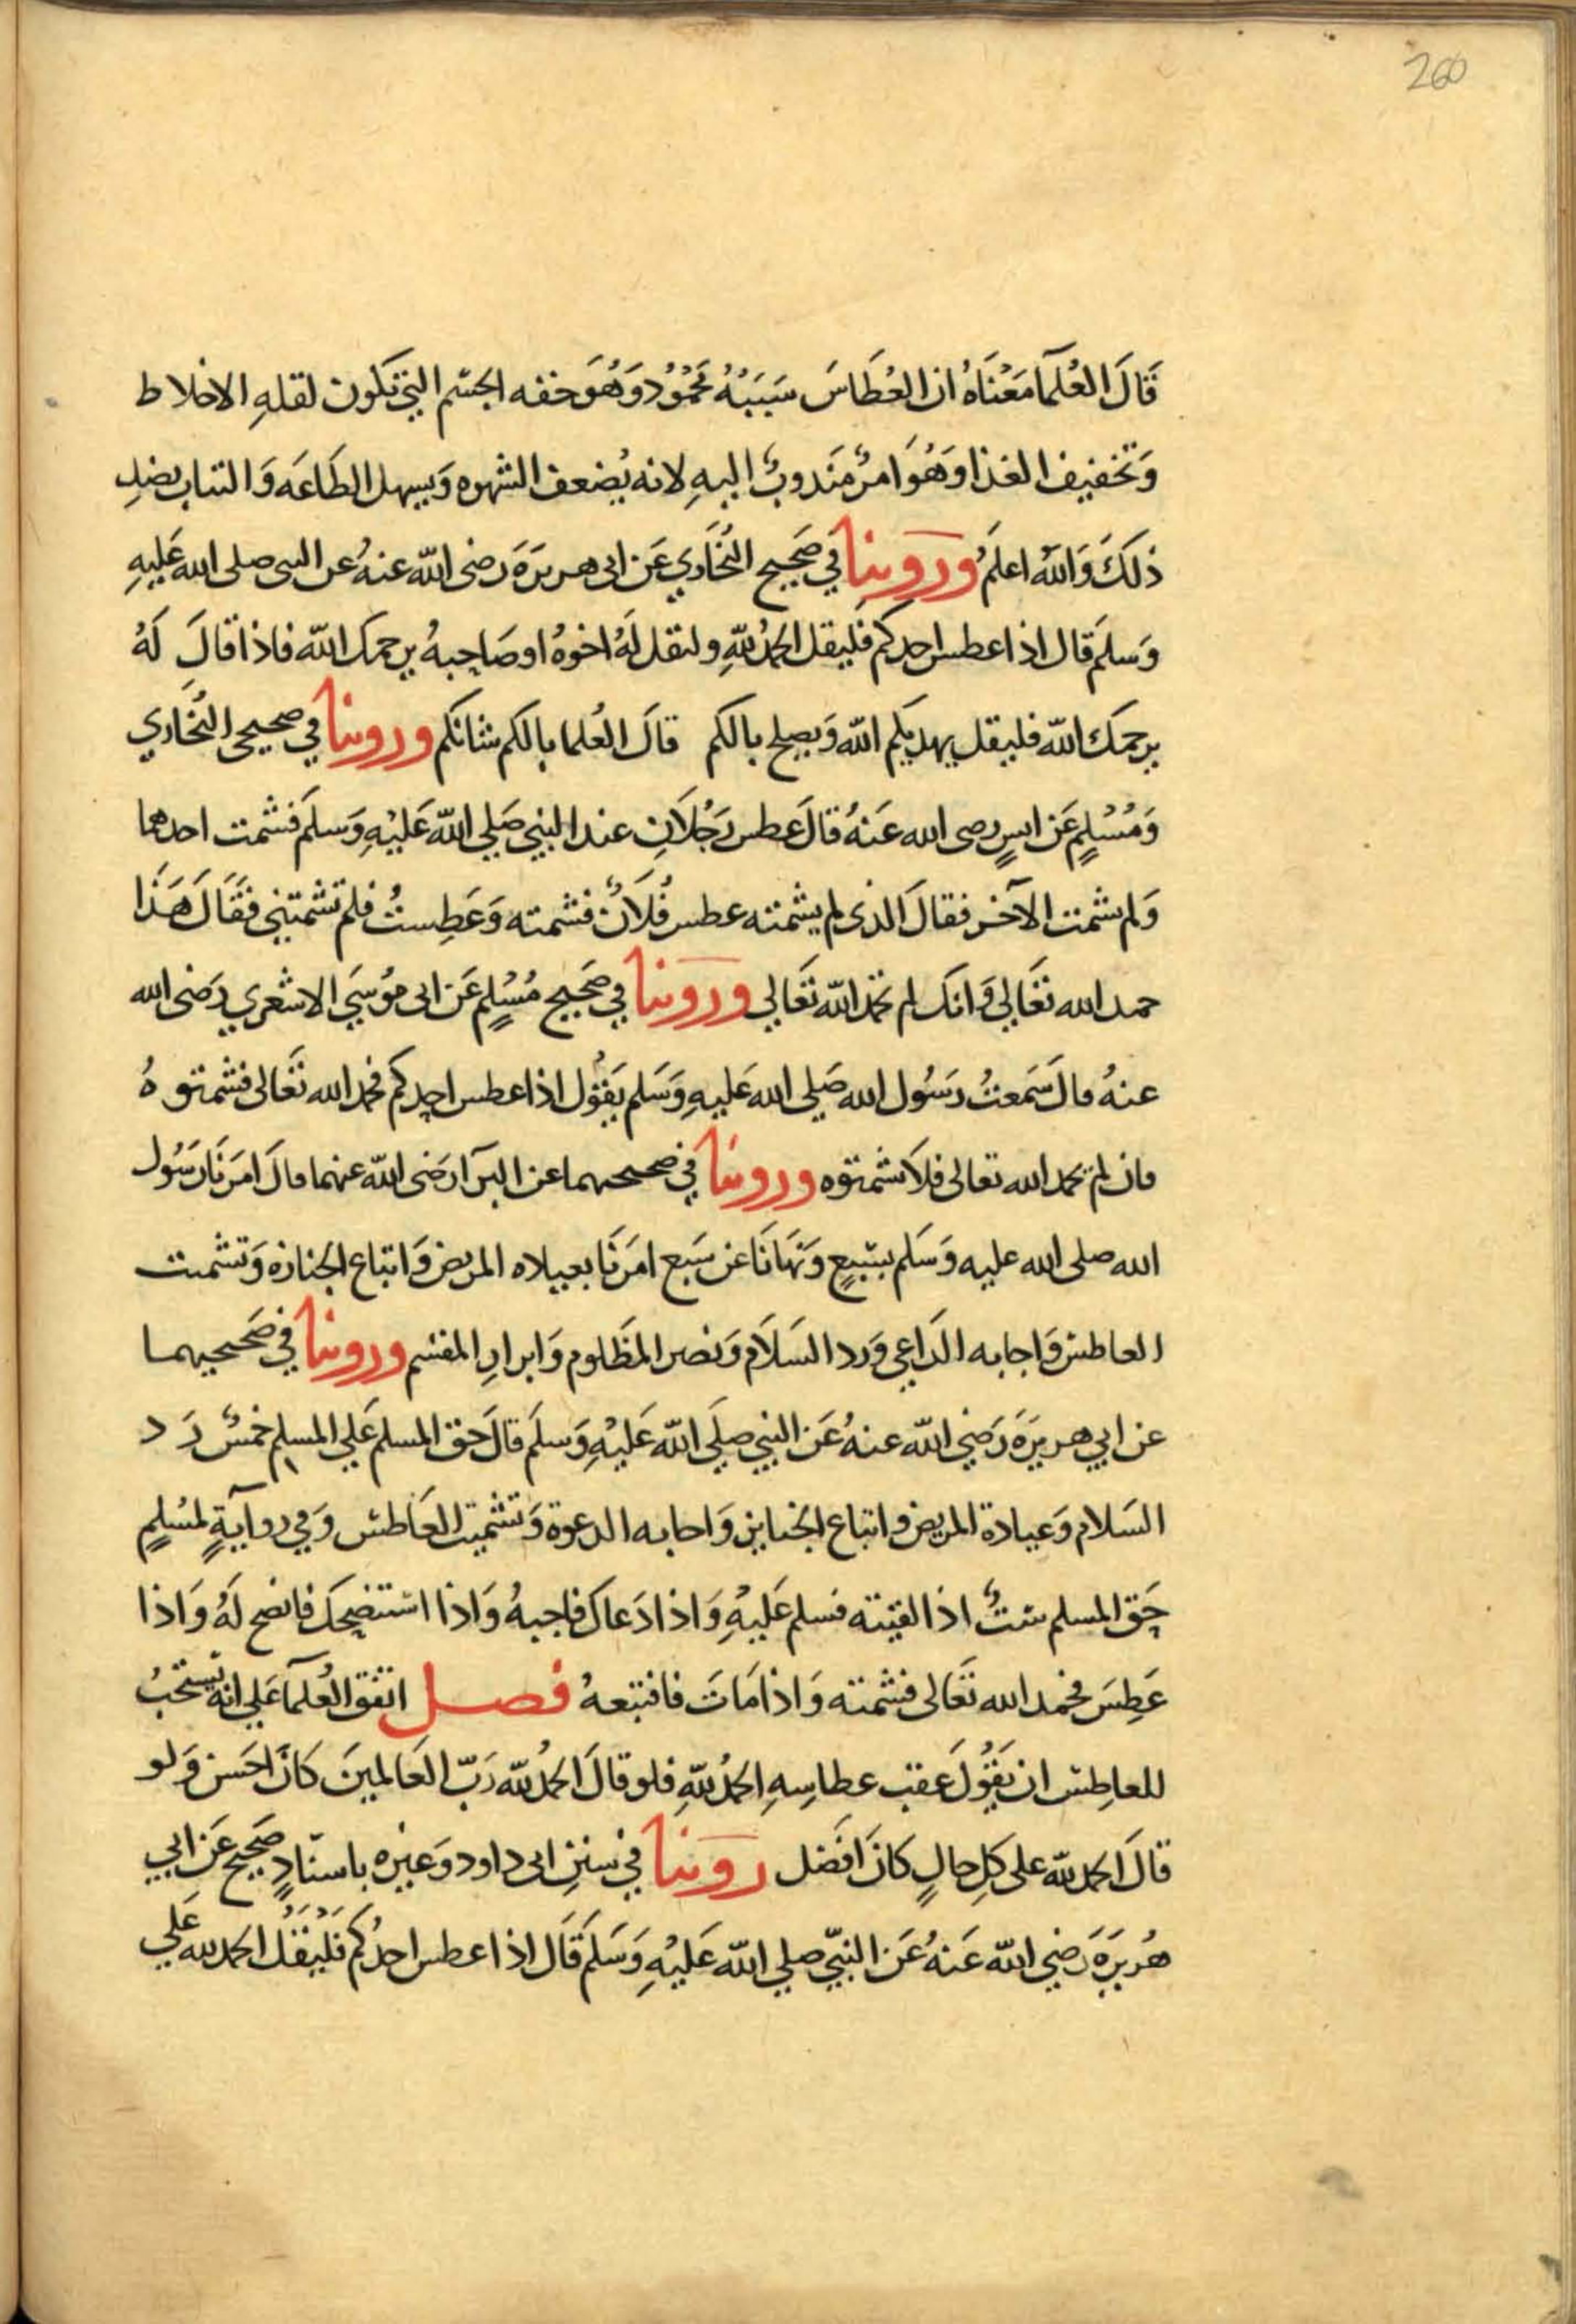 260
قَالَ العُلَمَآ مَعْنَاهُ ان العُطَاسَ سَبَبُهُ مَحْمُوُدٌ وَهُوَ خفه الجسْم التي تكون لقلهِ الاخلاط
وَتخفيف الغذا وَهُوَ امرٌ مَندوبٌ اليهِ لانه يُضعف الشهوه وَيسهل الطَاعَه وَالتتاب بضدِ
ذلكَ وَاللهُ اعلمُ ورَوينا في صَحِيح البُخَاري عَن ابى هريرَةَ رضى اللّه عنهُ عن النبى صلى الله عَليهِ
وَسلمَ قال اذا عطس احدكم فليقل الحمدُ للّهِ وليقل لَهُ اخوهُ او صَاحبهُ يرحمكَ اللّه فاذا قالَ لَهُ
يرحمكَ اللّه فليقل يهديكم اللّه وَيصلح بالكم قالَ العُلما بالكم شانكم وروينا في صحيحي البُخَاري
وَمُسْلِمٍ عَن انسٍ رضى الله عَنهُ قالَ عطس رَجُلاَنِ عند النبي صَلي اللّه عَليْهِ وَسلمَ فشمت احدهما
وَلم يشمت الآخر فقالَ الذى لم يشمته عطس فُلاَنٌ فشمته وَعَطِستُ فلم تشمتني فقَالَ هَذَا
حمد الله تعَالي وَانكَ لم تحمد اللّه تعَالي وروَينا في صَحِيح مُسْلِمٍ عَن ابى موُسَي الاشعري رَضى الله
عنهُ قالَ سَمعتُ رَسُول الله صَلى الله عَليهِ وَسَلم يَقوُل اذا عطس احدكم فحمد الله تعَالى فشمتوهُ
فان لم يحمد الله تعالى فلاَ تشمتوه وروينا في صحيحيهما عن البرَآ رَضى اللّه عنهما قالَ امرَنَا رَسُول
الله صلى الله عليه وَسَلم بسَبعٍ وَنهَانَا عَن سَبع امرَنَا بعياده المريض وَاتباع الجنازه وَتشميت
العاطس وَاجابه الدَاعي وَرد السَلاَم وَنصر المَظلوم وَابرارِ المقسم وروينا في صَحيحيهما
عن ابي هريرَةَ رَضي اللّه عنهُ عَن النبي صلَي اللّه عَليْهِ وَسلمَ قالَ حَق المسلم عَلي المسلم خمسٌ رَد
السَلام وَعيادة المريض وَاتباع الجنايز وَاجابه الدعوة وَتشميت العَاطس وَفي روَايةٍ لمُسْلِمٍ
حَق المسلم ستٌ اذا لقيته فسلم عَليْهِ وَاذا دَعاكَ فاجبهُ وَاذا استنضحكَ فانضح لَهُ وَاذا
عَطِسَ فحمد الله تعَالى فشمته وَاذا مَاتَ فاتبعهُ فصل اتفق العُلمَآ عَلي انهُ يُستَحَبُ
للعاطِس ان يَقُولَ عَقب عطاسِهِ الحمدُ للّهِ فلو قالَ الحمدُ للّه رَبّ العَالمينَ كَانَ احَسن وَلو
قالَ الحمد للّه على كلِ حالٍ كانَ افضَل رَوَينا في سننِ ابى داود وَغيْره باسنَادٍ صَحِيح عَن ابي
هُريرَةَ رَضي اللّه عَنهُ عَن النبيّ صلي اللّه عَليْهِ وَسَلمَ قَالَ اذا عطس احدُكم فَليَقُل الحمد لله عَلي